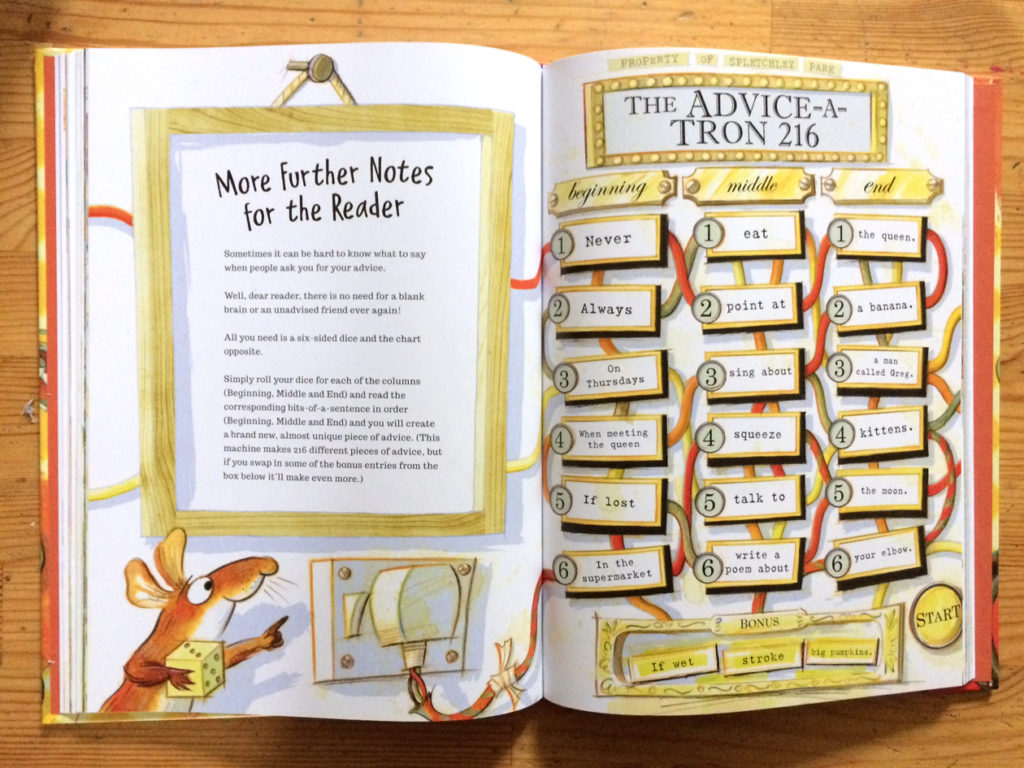 More Further Notes
for the Reader
Sometimes it can be hard to know what to say
when people ask you for your advice.
Well, dear reader, there is no need for a blank
brain or an unadvised friend ever again!
All you need is a six-sided dice and the chart
opposite.
Simply roll your dice for each of the columns
(Beginning, Middle and End) and read the
corresponding bits-of-a-sentence in order
(Beginning, Middle and End) and you will create
a brand new, almost unique piece of advice. (This
machine makes 216 different pieces of advice, but
if you swap in some of the bonus entries from the
box below it'll make even more.)
PROPERTY OF SPLETCHLEY PARK
THE ADVICE-A-
TRON 216
beginning middle end
1 Never
1 eat
1 the queen.
2 Always
2 point at
2 a banana.
3 On
Thursdays
3 sing about
3 a man
called Greg.
4 When meeting
the queen
4 squeeze
4 kittens.
5 If lost
5 talk to
5 the moon.
6 In the
supermarket
6 write a
poem about
6 your elbow.
START
BONUS
If wet stroke big pumpkins.